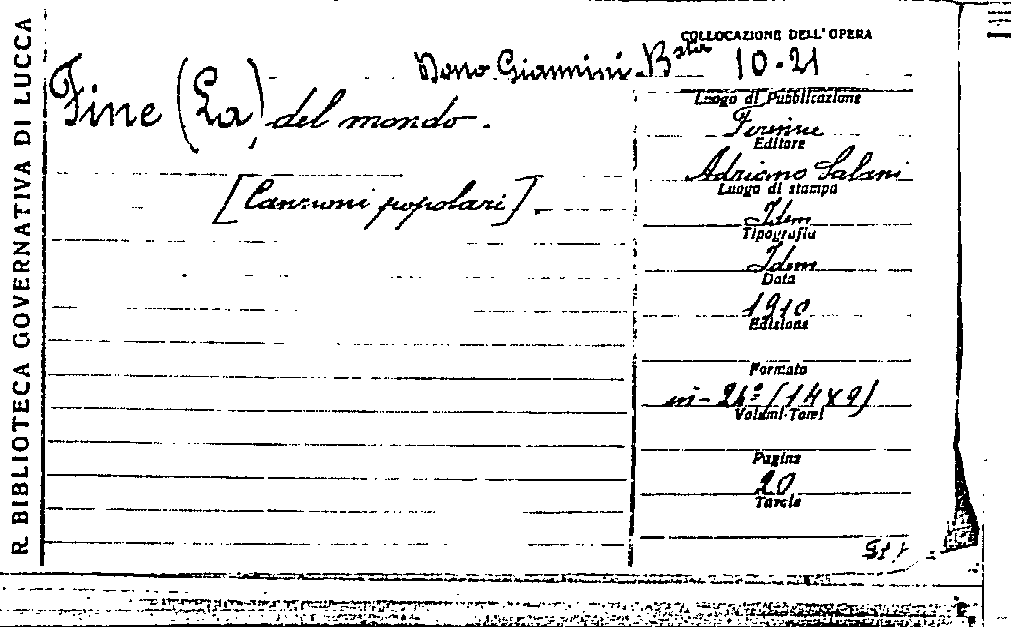 R. BIBLIOTECA GOVERNATIVA DI LUCCA
COLLOCAZIONE DELL'OPERA
Dono Giannini - Bater 10-21
Fine (La) del mondo.
[Canzoni popolari].
Luogo di Pubblicazione
Firenze
Editore
Adriano Salani
Luogo di stampa
Idem
Tipografia
Idem
Data
1910
Edizione
Formato
in-24º (14x9)
Volumi-Tomi
Pagine
20
Tavole